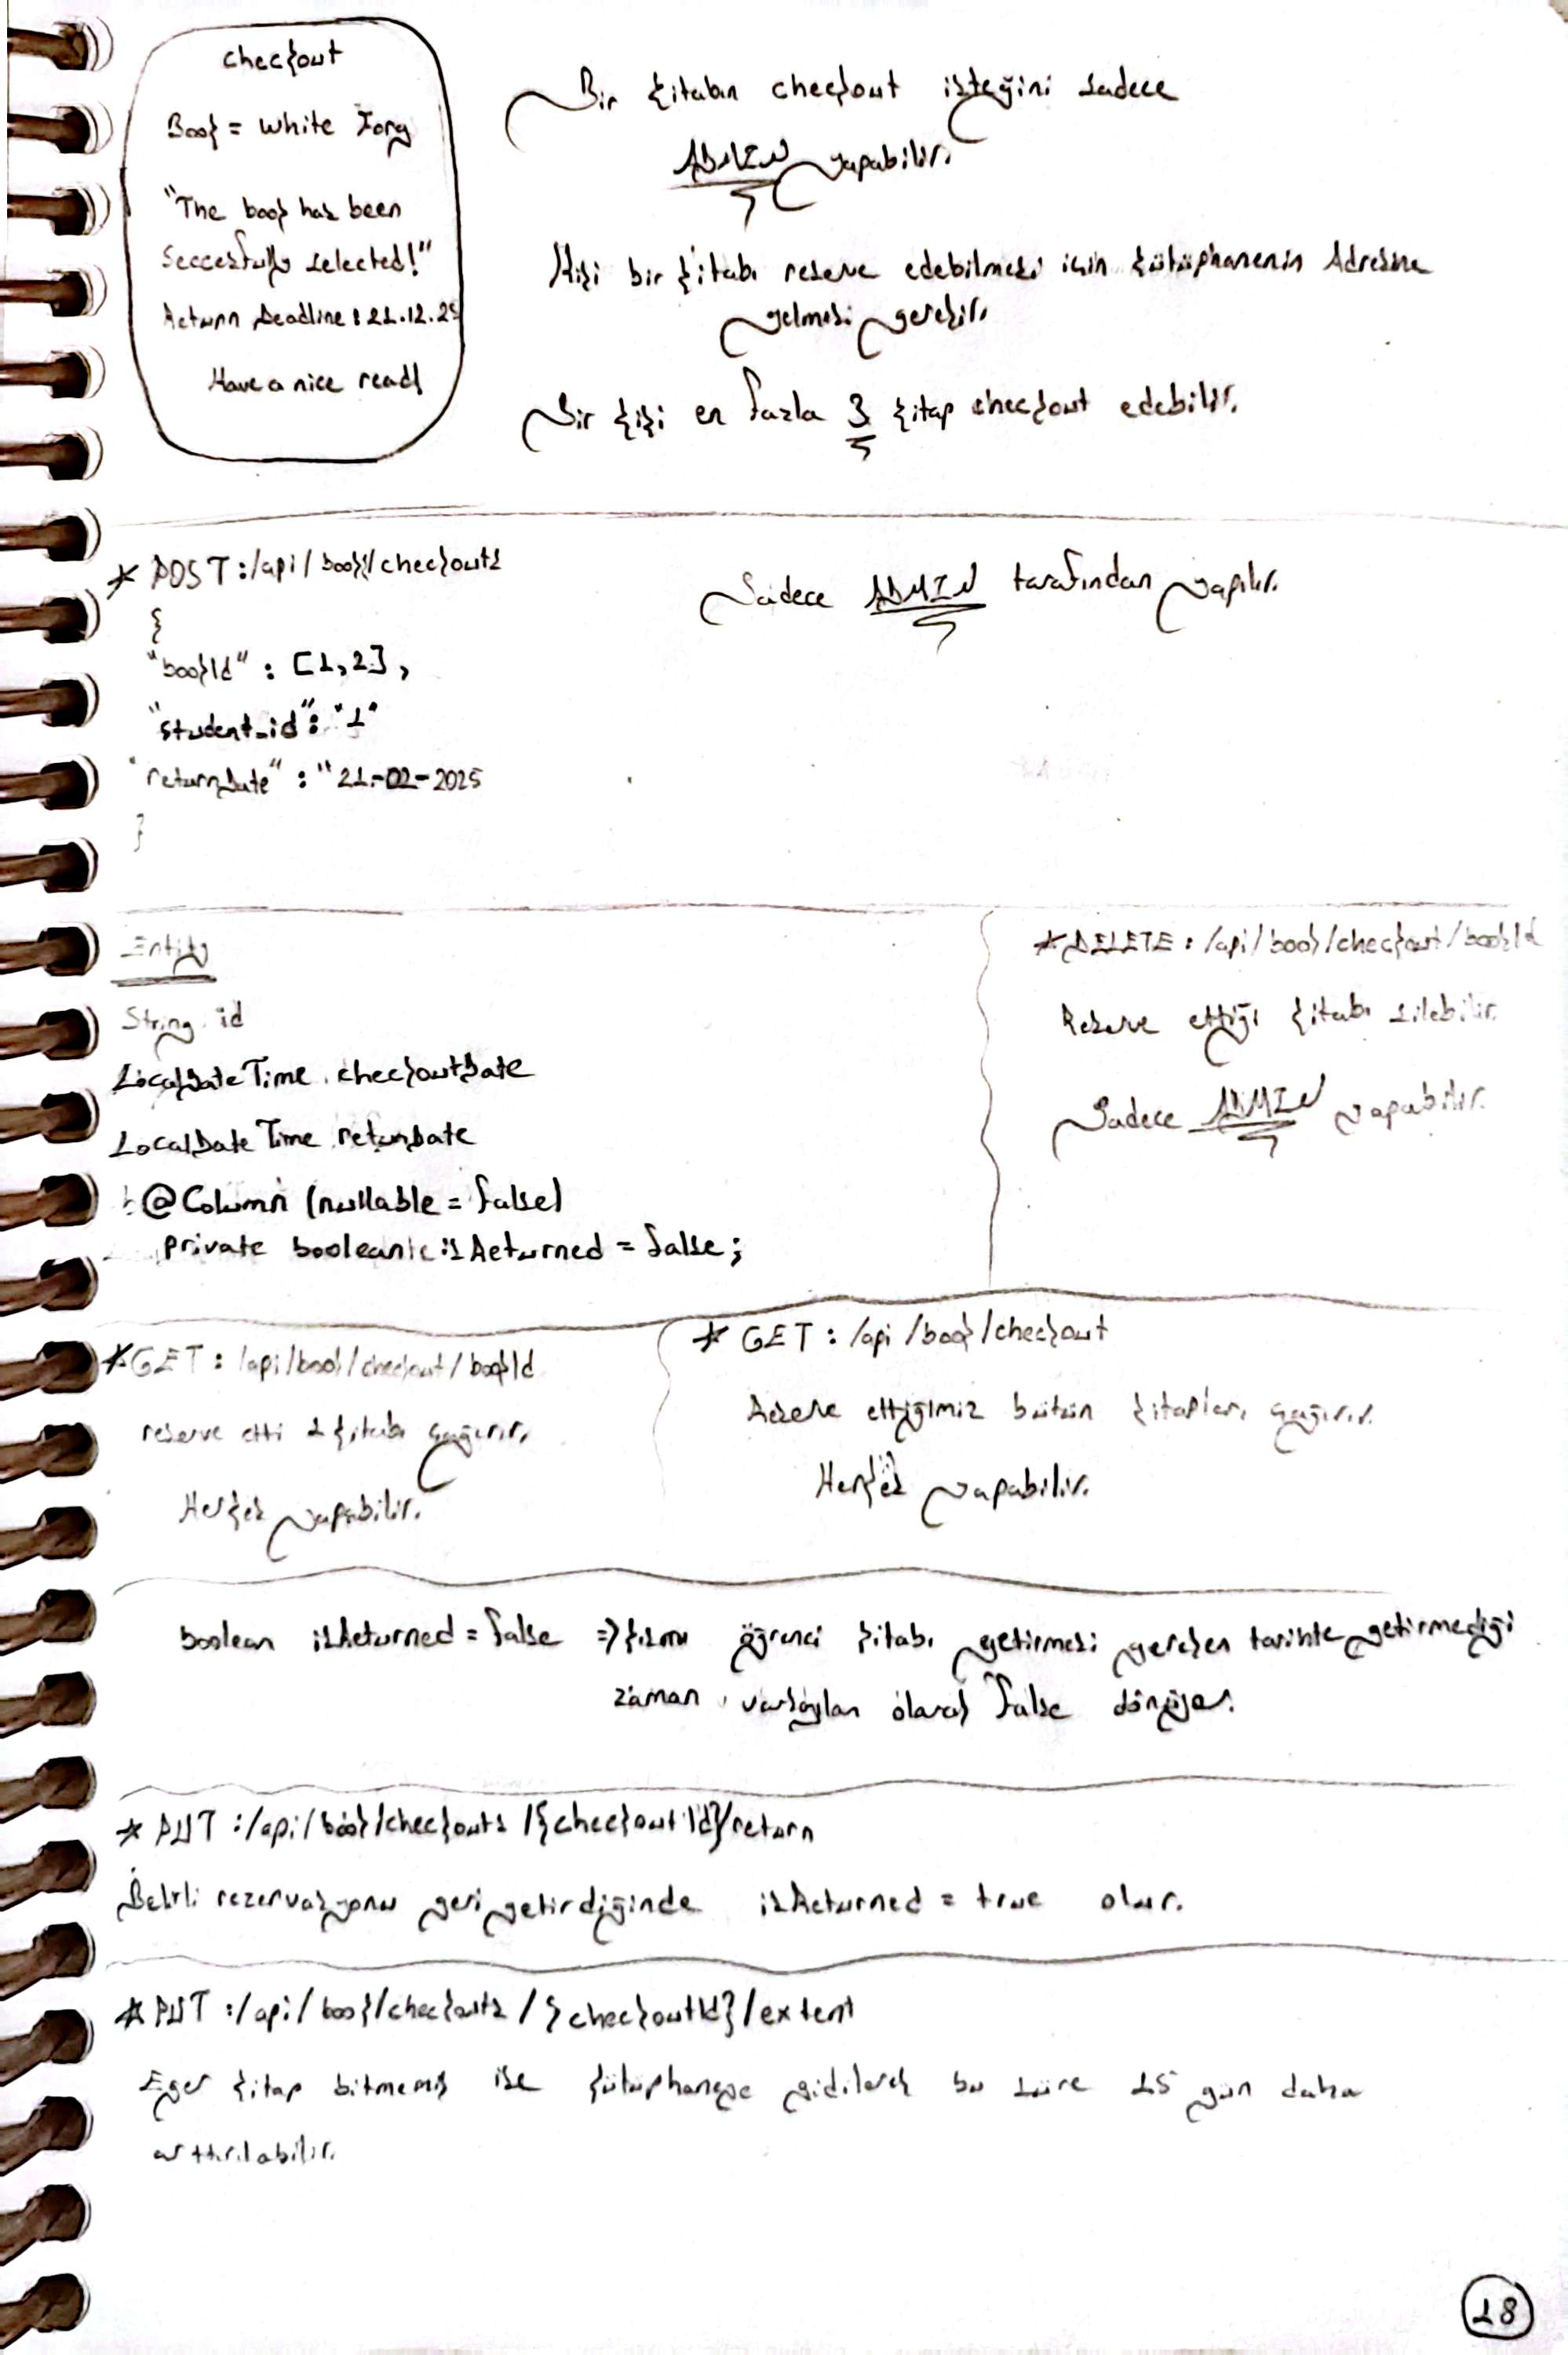 checkout
Book = White Fong
"The book has been
Seccesfully selected!"
Return Deadline : 21.12.25
Have a nice read!
Bir kitabın checkout isteğini sadece
ADMIN yapabilir.
Kişi bir kitabı reserve edebilmesi için kütüphanenin Adresine
gelmesi gerekir.
Bir kişi en fazla 3 kitap checkout edebilir.
* POST :/api/book/checkouts
{
"bookId" : [1,2],
"student_id" : "1"
"returnDate" : "21-02-2025
}
Sadece ADMIN tarafından yapılır.
Entity
String id
LocalDateTime checkoutDate
LocalDateTime returnDate
@Column (nullable = false)
private boolean isReturned = false;
* DELETE : /api/book/checkout/bookId
Reserve ettiği kitabı silebilir.
Sadece ADMIN yapabilir.
* GET : /api/book/checkout/bookId
reserve etti 1 kitabı çağırır.
Herkes yapabilir.
* GET : /api/book/checkout
Reserve ettiğimiz bütün kitapları çağırır.
Herkes yapabilir.
boolean isReturned = false => öğrenci kitabı getirmesi gereken tarihte getirmediği
zaman, varsayılan olarak false dönüyor.
* PUT :/api/book/checkouts/{checkoutId}/return
Belirli rezervasyonu geri getirdiğinde isReturned = true olur.
* PUT :/api/book/checkouts/{checkoutId}/extent
Eger kitap bitmemiş ise kütüphaneye gidilerek bu süre 15 gün daha
arttırılabilir.
18